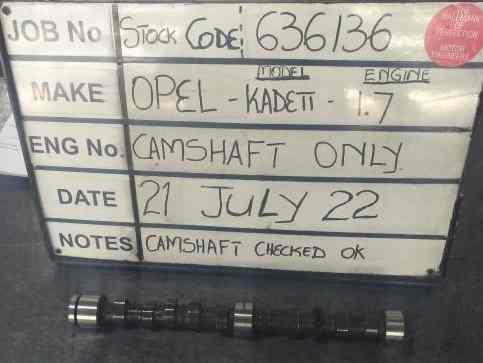 JOB No STOCK CODE: 636136
THE HALLMARK OF PERFECTION
MOTOR ENGINEERS
MODEL ENGINE
MAKE OPEL - KADETT - 1.7
ENG No. CAMSHAFT ONLY
DATE 21 JULY 22
NOTES CAMSHAFT CHECKED OK